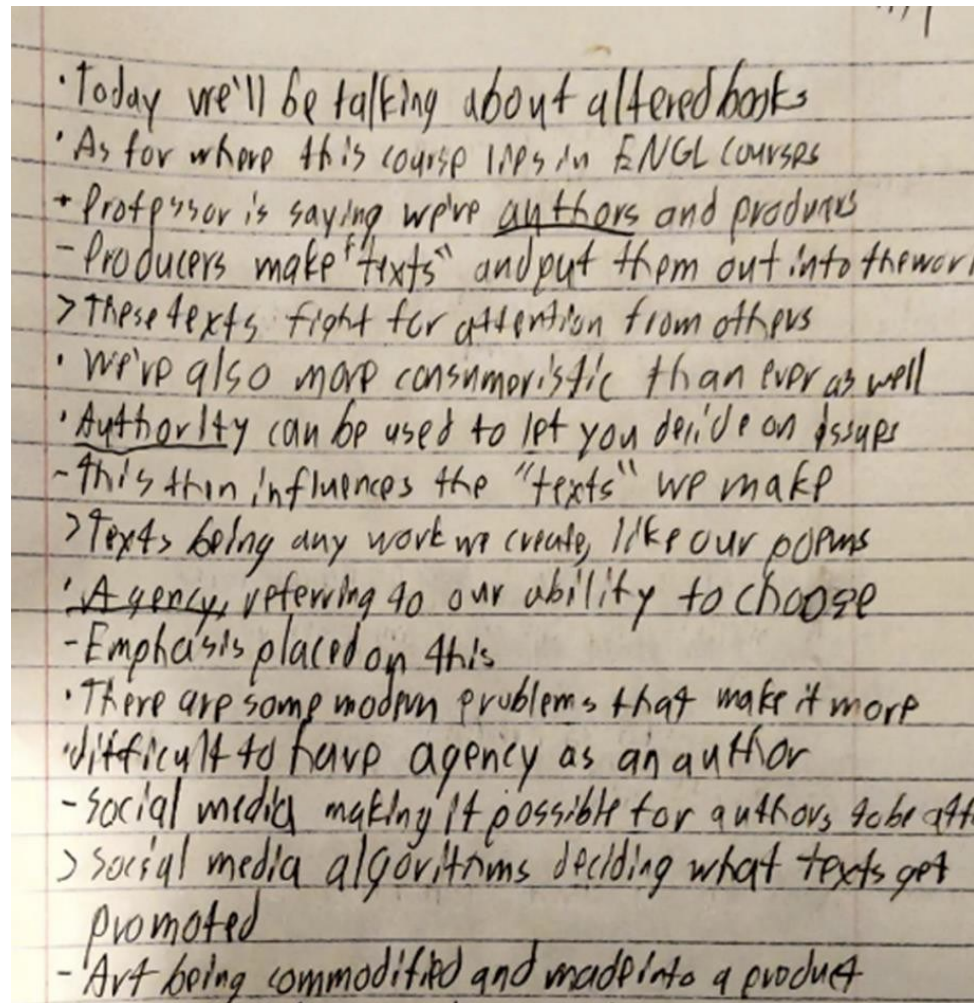 ·Today we'll be talking about altered books
·As for where this course lies in ENGL courses
+ Professor is saying we're authors and producers
- Producers make "texts" and put them out into the worl
> These texts fight for attention from others
· We're also more consumeristic than ever as well
·Authority can be used to let you decide on issues
- this then influences the "texts" we make
> Texts being any work we create, like our poems
·Agency, referring to our ability to choose
- Emphasis placed on this
·There are some modern problems that make it more
·difficult to have agency as an author
- Social media making it possible for authors to be att
> Social media algorithms deciding what texts get
promoted
- Art being commodified and made into a product